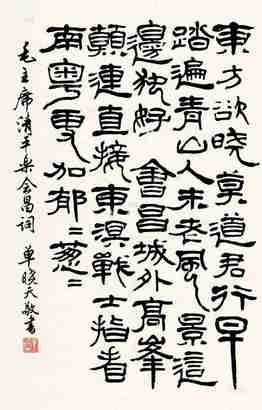 東方欲曉莫道君行早
踏遍青山人未老風景這
邊独好 會昌城外高峯
顛連直接東溟戰士指看
南粤更加郁〻葱〻
毛主席清平樂会昌詞 單曉天敬書